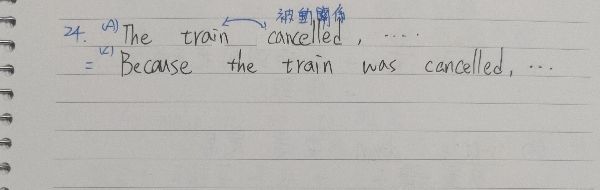 被動關係
24. (A) The train cancelled, ....
= (C) Because the train was cancelled, ...